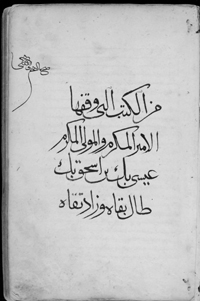 من الكتب التي وقفها
الامير المكرم والمولى المكرم
عيسى بك بن اسحق بك
طال بقاه وزاد تقاه